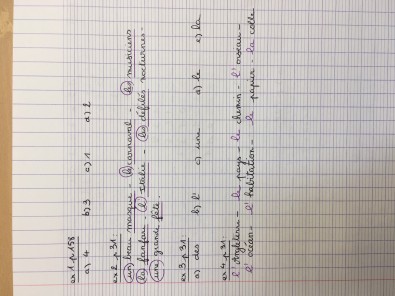 ex 1 p 158
a) 4 b) 3 c) 1 d) 2
ex 2 p 31:
un beau masque - le carnaval - les musiciens
la fanfare - l' Italie - les défilés nocturnes -
une grande fête.
ex 3 p 31:
a) des b) l' c) une d) le e) la
ex 4 p 31:
l' Angleterre - le pays - le chemin - l' oiseau -
l' océan - l' habitation - le papier - la colle